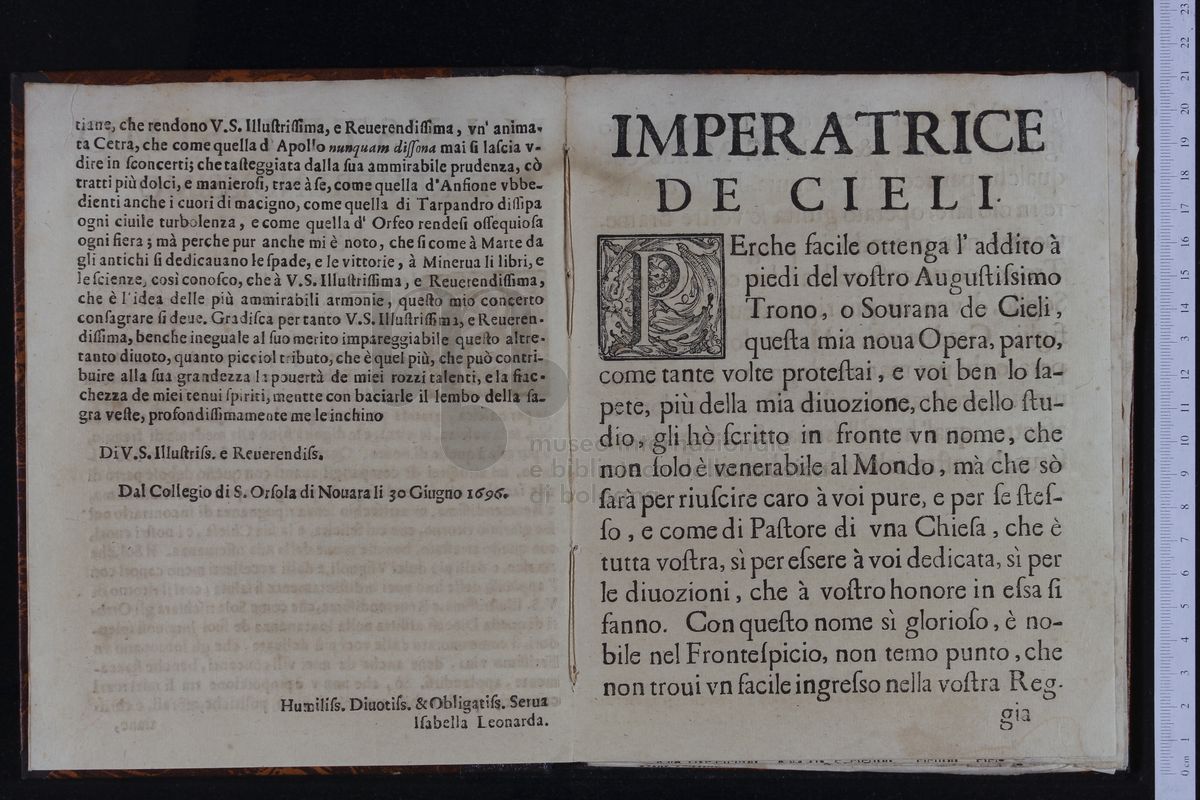 tiane, che rendono V.S. Illuſtriſſima, e Reuerendiſſima, vn' anima-
ta Cetra, che come quella d' Apollo nunquam diſſona mai ſi laſcia v-
dire in ſconcerti; che taſteggiata dalla ſua ammirabile prudenza, cò
tratti più dolci, e manieroſi, trae à ſe, come quella d'Anfione vbbe-
dienti anche i cuori di macigno, come quella di Tarpandro diſſipa
ogni ciuile turbolenza, e come quella d' Orfeo rendeſi oſſequioſa
ogni fiera; mà perche pur anche mi è noto, che ſi come à Marte da
gli antichi ſi dedicauano le ſpade, e le vittorie, à Minerua li libri, e
le ſcienze, così conoſco, che à V.S. Illuſtriſſima, e Reuerendiſſima,
che è l'idea delle più ammirabili armonie, queſto mio concerto
conſagrare ſi deue. Gradiſca per tanto V.S. Illuſtriſſima, e Reueren-
diſſima, benche ineguale al ſuo merito impareggiabile queſto altre-
tanto diuoto, quanto picciol tributo, che è quel più, che può contri-
buire alla ſua grandezza la pouertà de miei rozzi talenti, e la fiac-
chezza de miei tenui ſpiriti, mentte con baciarle il lembo della ſa-
gra veſte, profondiſſimamente me le inchino
Di V.S. Illuſtriſs. e Reuerendiſs.
Dal Collegio di S. Orſola di Nouara li 30 Giugno 1696.
Humiliſs. Diuotiſs. & Obligatiſs. Serua
Iſabella Leonarda.
IMPERATRICE
DE CIELI.
PErche facile ottenga l' addito à
piedi del voſtro Auguſtiſsimo
Trono, o Sourana de Cieli,
queſta mia noua Opera, parto,
come tante volte proteſtai, e voi ben lo ſa-
pete, più della mia diuozione, che dello ſtu-
dio, gli hò ſcritto in fronte vn nome, che
non ſolo è venerabile al Mondo, mà che sò
ſarà per riuſcire caro à voi pure, e per ſe ſteſ-
ſo, e come di Paſtore di vna Chieſa, che è
tutta voſtra, sì per eſsere à voi dedicata, sì per
le diuozioni, che à voſtro honore in eſsa ſi
fanno. Con queſto nome sì glorioſo, è no-
bile nel Fronteſpicio, non temo punto, che
non troui vn facile ingreſso nella voſtra Reg-
gia
museo internazionale
e biblioteca della musica
di bologna
0 cm 1 2 3 4 5 6 7 8 9 10 11 12 13 14 15 16 17 18 19 20 21 22 23